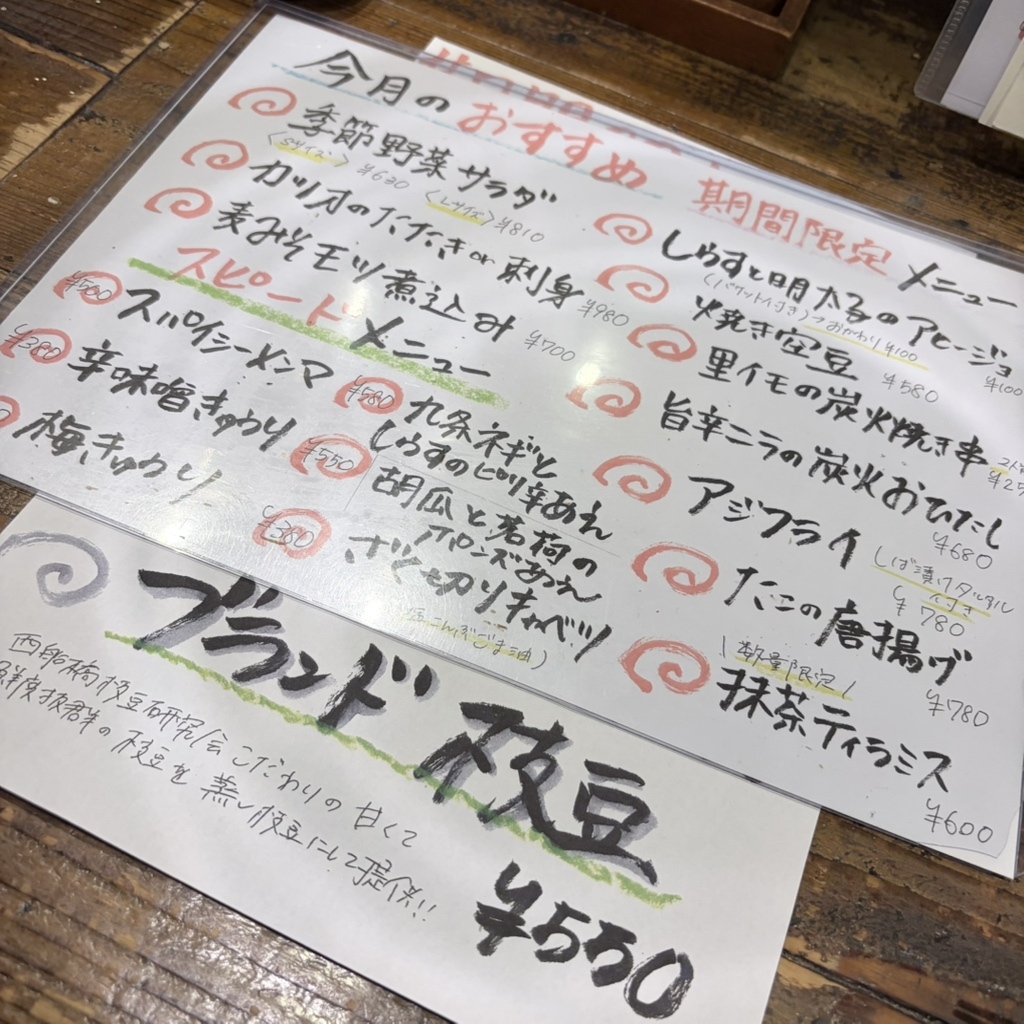 今月のおすすめ
季節野菜サラダ
〈Sサイズ〉¥630 〈Lサイズ〉¥810
カツオのたたきor刺身
¥980
麦みそモツ煮込み
¥700
スピードメニュー
¥500 スパイシーメンマ
¥380 辛味噌きゅうり
梅きゅうり
¥580 九条ネギと
しらすのピリ辛あえ
¥550 胡瓜と茗荷の
アーモンズあえ
¥380 ざく切りキャベツ
こんぶごま油)
期間限定メニュー
しらすと明太子のアヒージョ
(バゲット付き)→おかわり¥100
焼き空豆
¥580
里イモの炭火焼き串
旨辛ニラの炭火おひたし
¥680
アジフライ
しば漬けタルタル
付き
¥780
たこの唐揚げ
¥780
\数量限定/
抹茶ティラミス
¥600
ブランド枝豆
西船橋枝豆研究会こだわりの甘くて
鮮度抜群の枝豆を蒸し枝豆にして提供!!
¥550